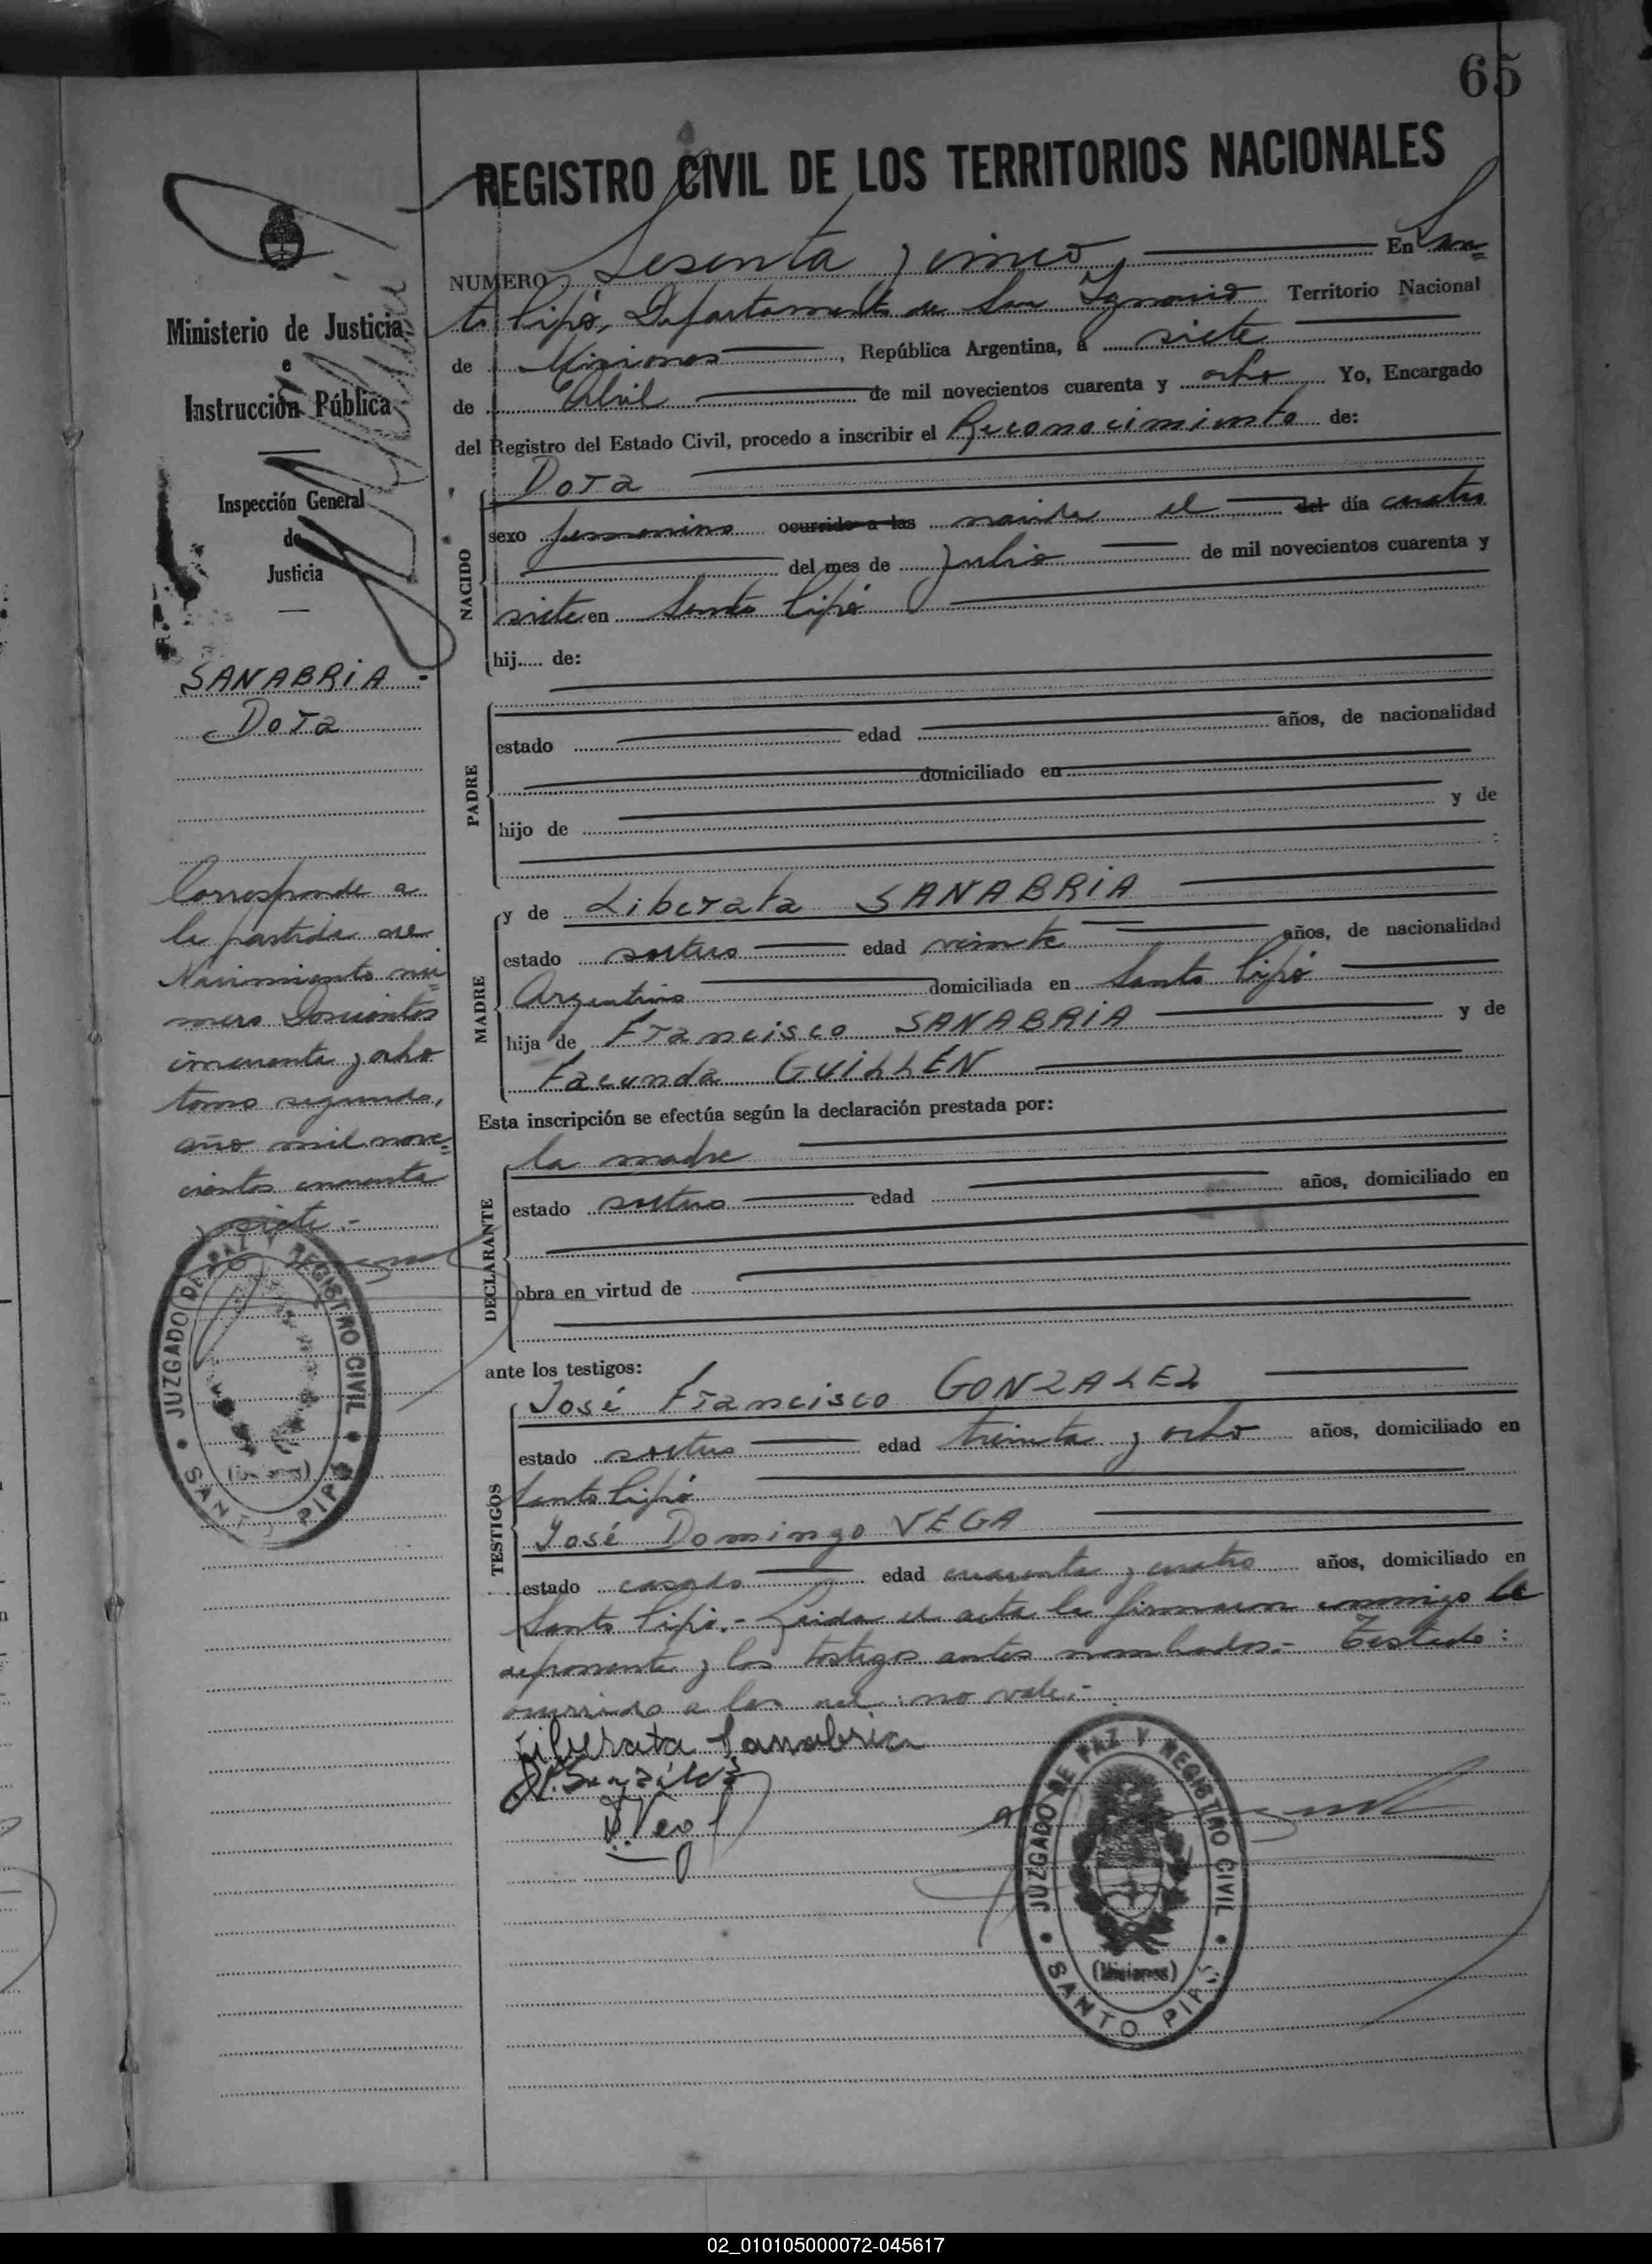 65
REGISTRO CIVIL DE LOS TERRITORIOS NACIONALES
NUMERO Sesenta y cinco En San=
to Pipó, Departamento de San Ignacio Territorio Nacional
de Misiones, República Argentina, a siete
de Abril de mil novecientos cuarenta y ocho Yo, Encargado
del Registro del Estado Civil, procedo a inscribir el Reconocimiento de:
Dora
NACIDO
sexo femenino ocurrido a las nacida el del día cuatro
del mes de Julio de mil novecientos cuarenta y
siete en Santo Pipó
hij..... de:
PADRE
estado edad años, de nacionalidad
domiciliado en
hijo de y de
MADRE
y de Liberata SANABRIA
estado soltera edad veinte años, de nacionalidad
Argentina domiciliada en Santo Pipó
hija de Francisco SANABRIA y de
Facunda GUILLÉN
Esta inscripción se efectúa según la declaración prestada por:
DECLARANTE
la madre
estado soltera edad años, domiciliado en
obra en virtud de
ante los testigos:
TESTIGOS
José Francisco GONZALEZ
estado soltero edad treinta y ocho años, domiciliado en
Santo Pipó
José Domingo VEGA
estado casado edad cuarenta y cuatro años, domiciliado en
Santo Pipó.- Leida el acta la firmaron conmigo la
deponente y los testigos antes nombrados.- Testado:
ocurrido a las del: no vale.-
Liberata Sanabria
González
D. Vega
JUZGADO DE PAZ Y REGISTRO CIVIL
(Misiones)
SANTO PIPÓ
Ministerio de Justicia
e
Instrucción Pública
Inspección General
de
Justicia
SANABRIA -
Dora
Corresponde a
la partida de
Nacimiento nú=
mero Doscientos
cincuenta y ocho
tomo segundo,
año mil nove=
cientos cuarenta
y siete.-
JUZGADO DE PAZ Y REGISTRO CIVIL
SANTO PIPÓ
02_010105000072-045617